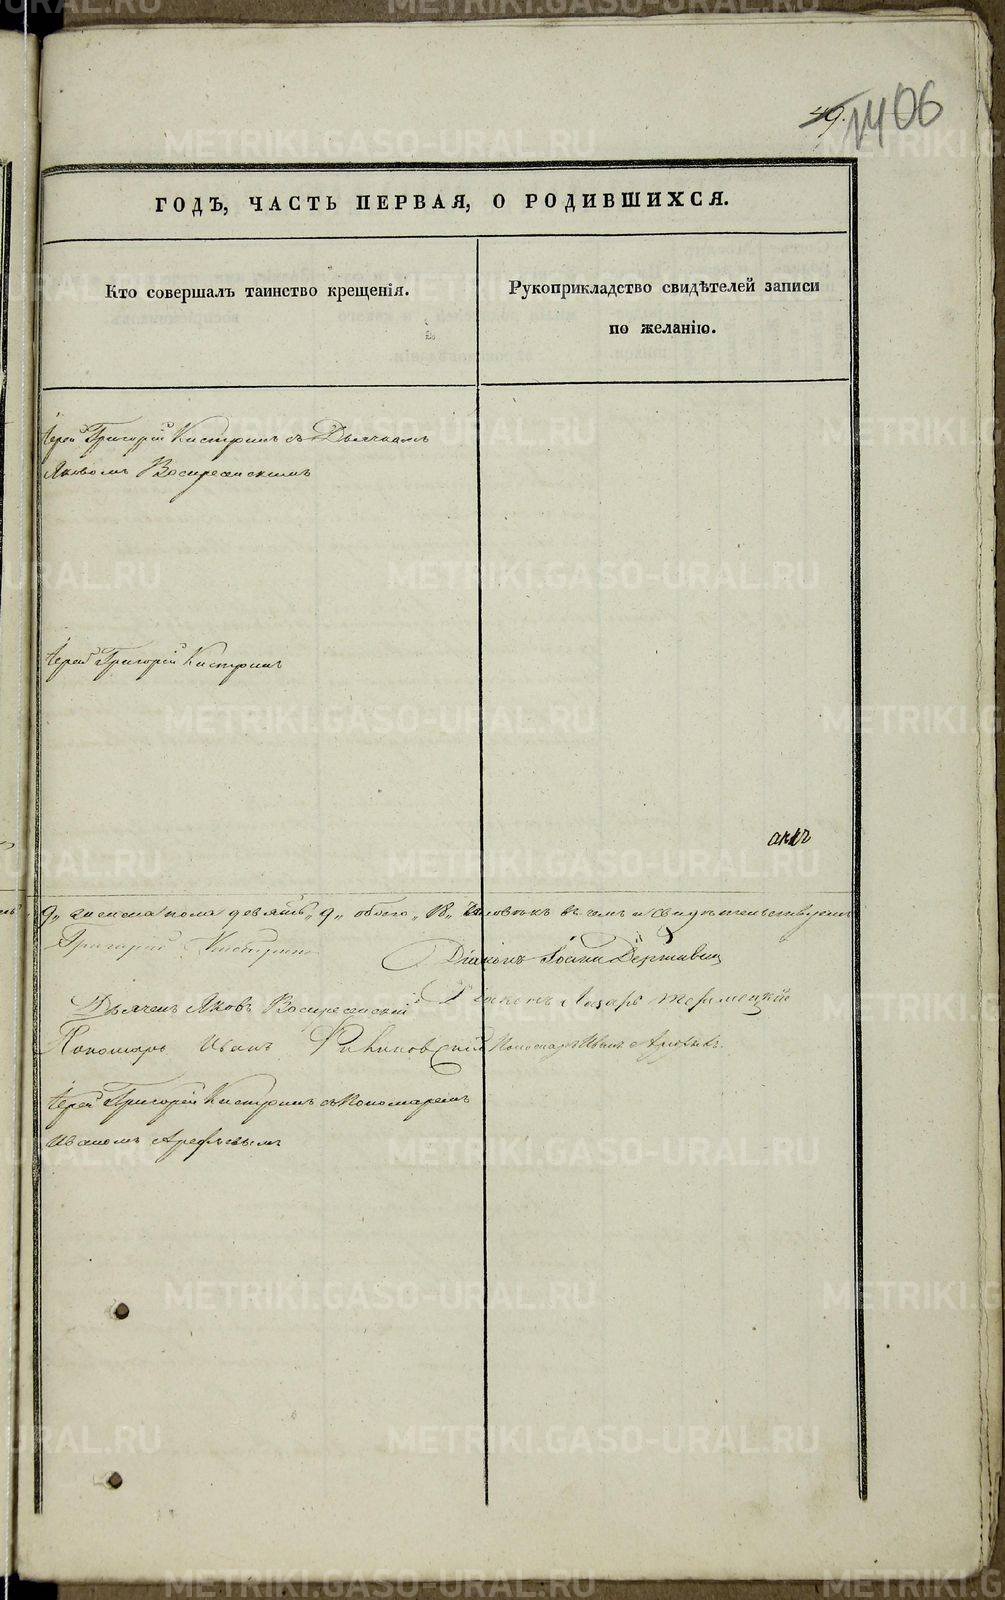 49.
1406
ГОДЪ, ЧАСТЬ ПЕРВАЯ, О РОДИВШИХСЯ.
Кто совершалъ таинство крещенія.
Рукоприкладство свидѣтелей записи
по желанію.
Іерей Григорій Кистринъ съ Дьячкомъ
Яковомъ Воскресенскимъ
Іерей Григорій Кистринъ
9„ женска пола девять„ 9„ обоего „18„ человѣкъ въ чемъ и свидѣтельствуемъ
Григорій Кистринъ
Діаконъ Іоаннъ
Дьячекъ Яковъ Воскресенскій
Діаконъ Лазарь
Пономарь Иванъ
Пономарь Иванъ Арефьевъ.
Іерей Григорій Кистринъ съ Пономаремъ
Иваномъ Арефьевымъ
METRIKI.GASO-URAL.RU